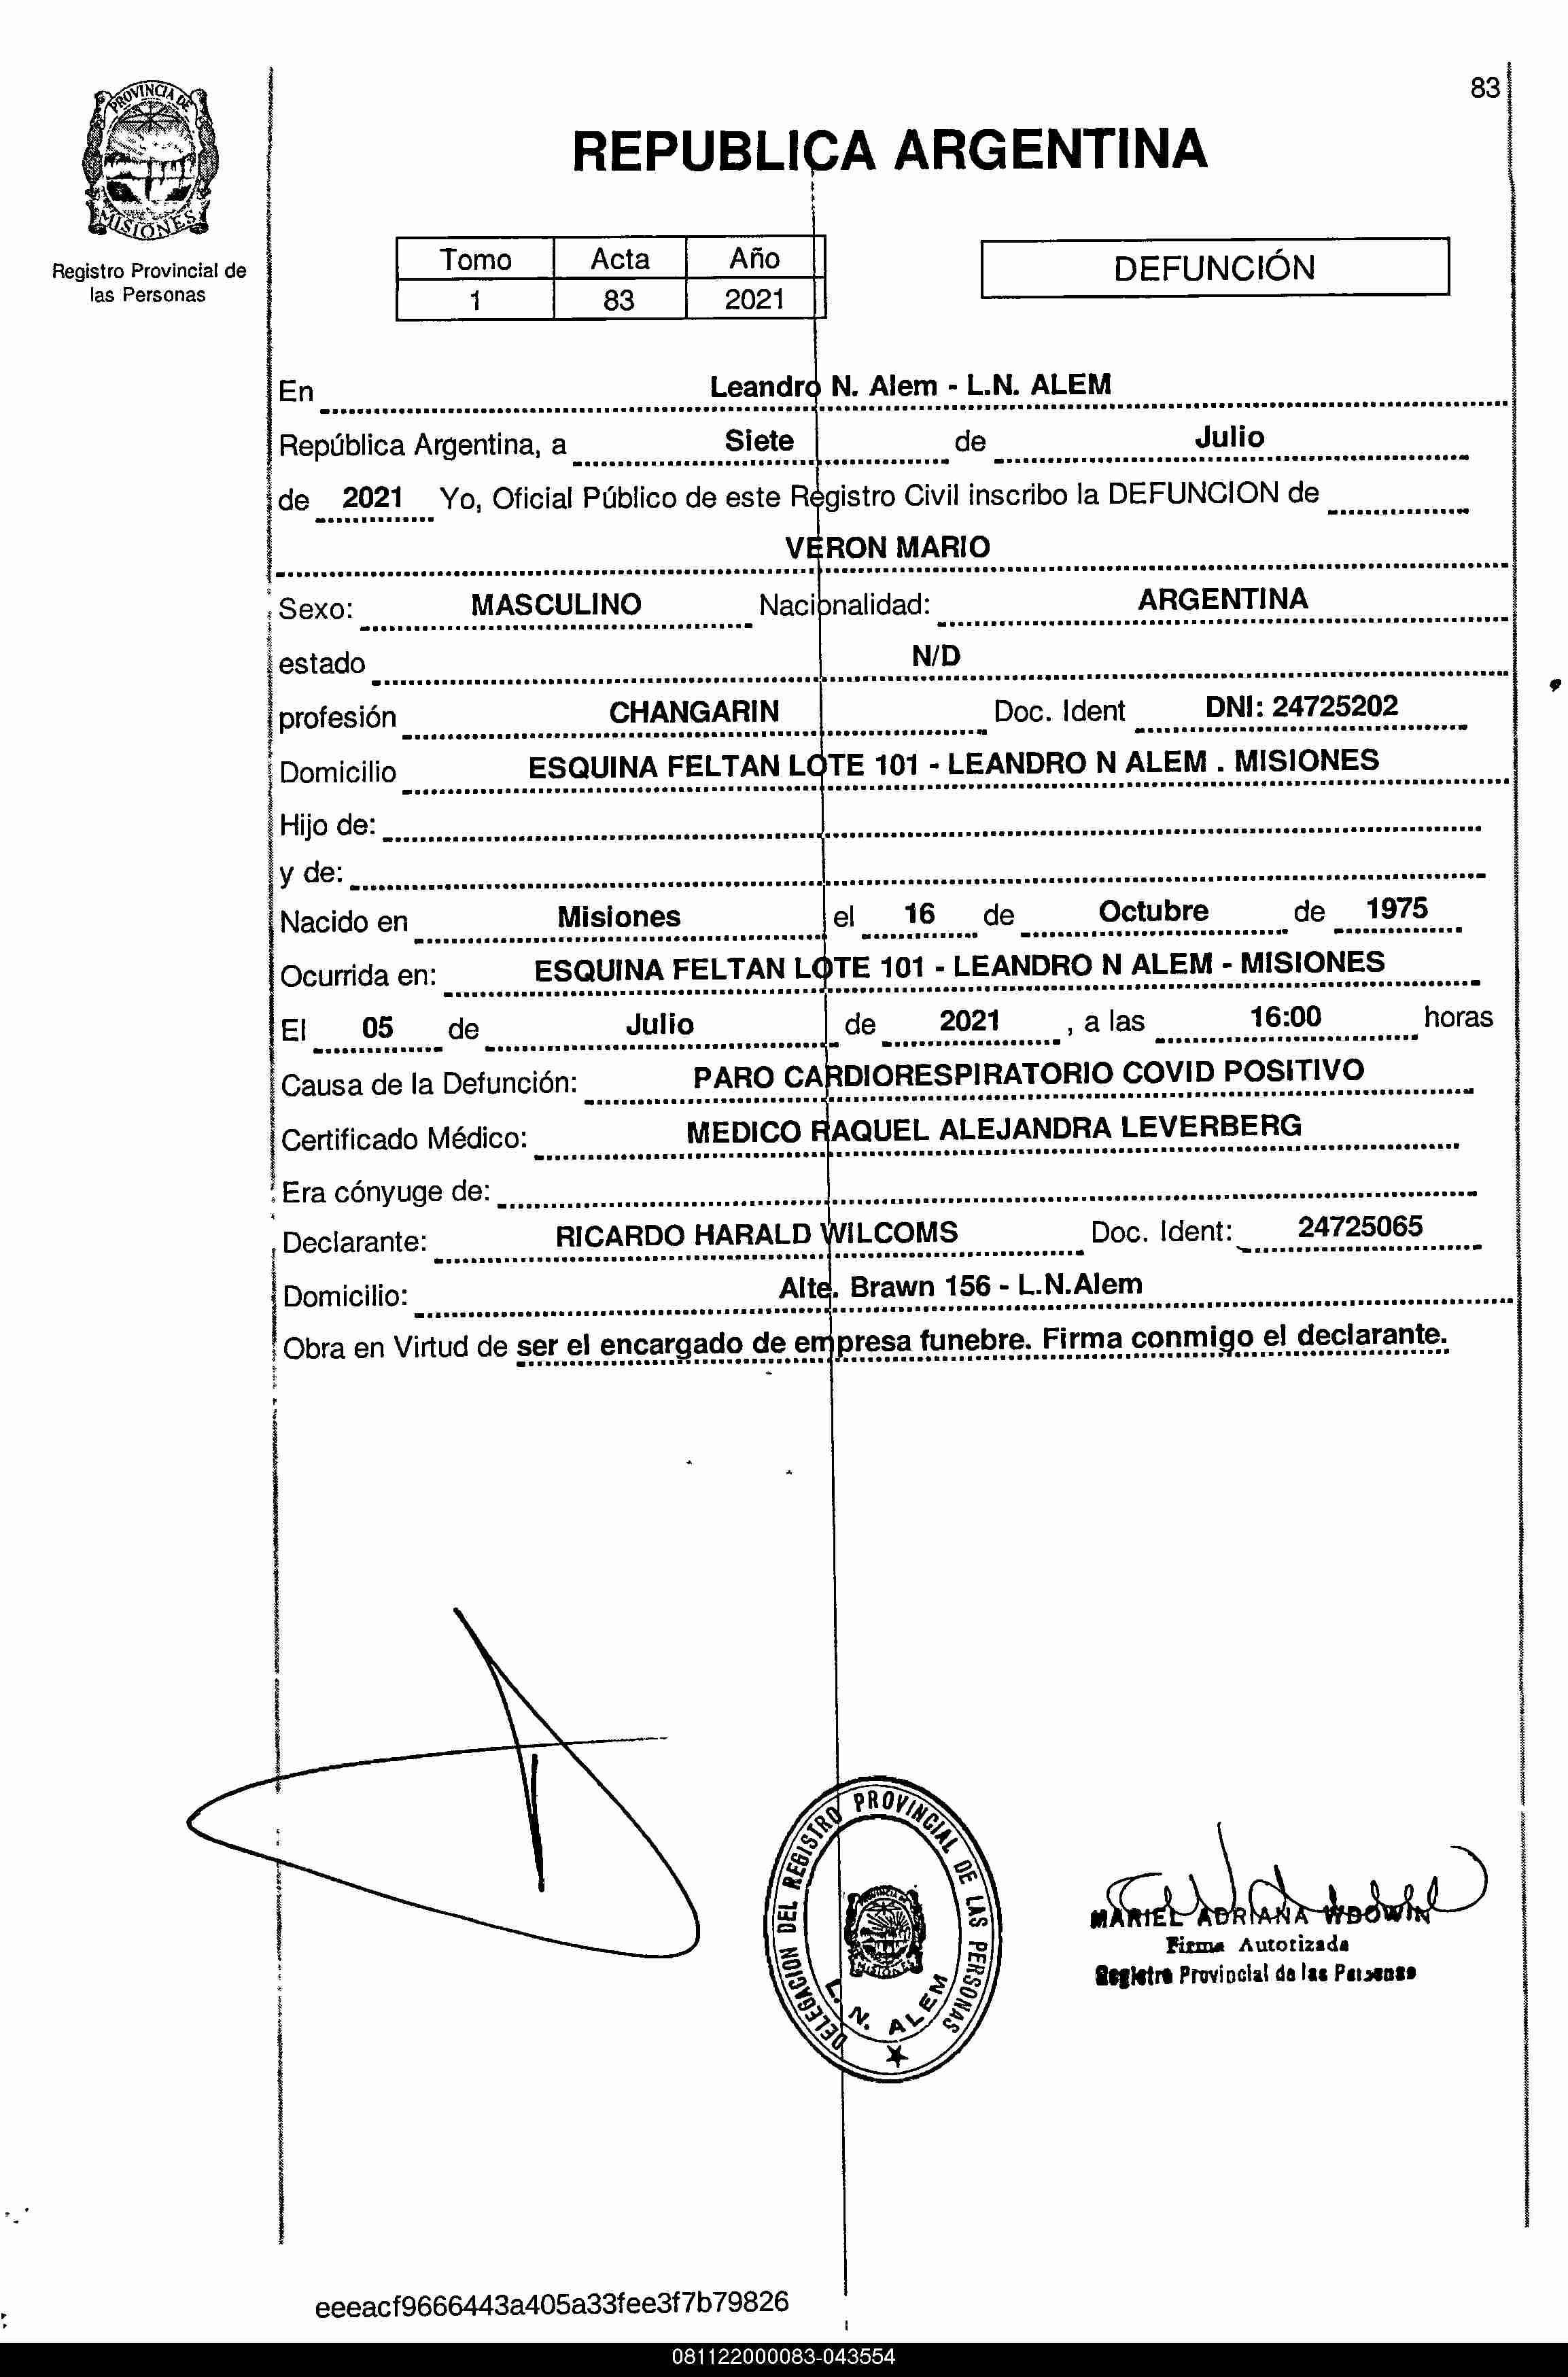 83
PROVINCIA DE
MISIONES
Registro Provincial de
las Personas
REPUBLICA ARGENTINA
Tomo Acta Año
1 83 2021
DEFUNCIÓN
En Leandro N. Alem - L.N. ALEM
República Argentina, a Siete de Julio
de 2021 Yo, Oficial Público de este Registro Civil inscribo la DEFUNCION de
VERON MARIO
Sexo: MASCULINO Nacionalidad: ARGENTINA
estado N/D
profesión CHANGARIN Doc. Ident DNI: 24725202
Domicilio ESQUINA FELTAN LOTE 101 - LEANDRO N ALEM . MISIONES
Hijo de:
y de:
Nacido en Misiones el 16 de Octubre de 1975
Ocurrida en: ESQUINA FELTAN LOTE 101 - LEANDRO N ALEM - MISIONES
El 05 de Julio de 2021 , a las 16:00 horas
Causa de la Defunción: PARO CARDIORESPIRATORIO COVID POSITIVO
Certificado Médico: MEDICO RAQUEL ALEJANDRA LEVERBERG
Era cónyuge de:
Declarante: RICARDO HARALD WILCOMS Doc. Ident: 24725065
Domicilio: Alte. Brawn 156 - L.N.Alem
Obra en Virtud de ser el encargado de empresa funebre. Firma conmigo el declarante.
DELEGACION DEL REGISTRO PROVINCIAL DE LAS PERSONAS
L. N. ALEM
MARIEL ADRIANA WDOWIN
Firma Autorizada
Registro Provincial de las Personas
eeeacf9666443a405a33fee3f7b79826
081122000083-043554